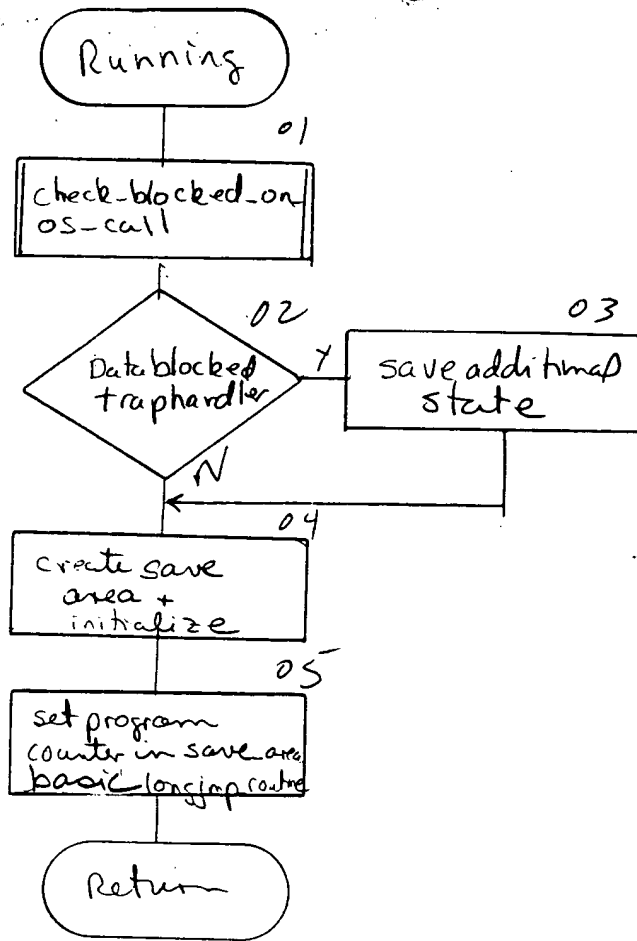 Running
01
check_blocked_on_
os_call
02
Data blocked
traphandler
Y
03
save additional
state
N
04
create save
area +
initialize
05
set program
counter in save area
basic longjmp routine
Return